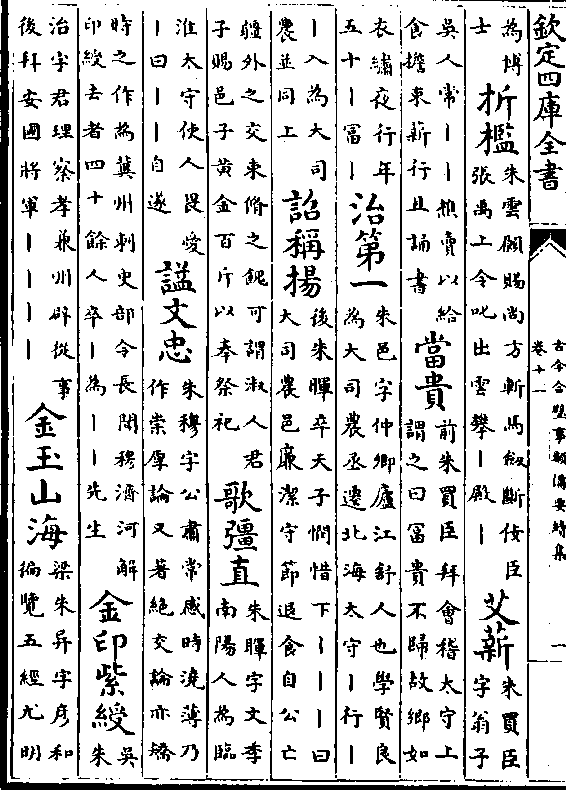 欽定四庫全書
古今合璧事類備要續集
卷十一
一
為博
士
折檻
朱雲願賜尚方斬馬劔斷佞臣
張禹上令叱出雲攀丨殿丨
艾薪
朱買臣
字翁子
吳人常丨丨樵賣以給
食擔束薪行且誦書
當貴
前朱買臣拜會稽太守上
謂之曰富貴不歸故鄉如
衣繡夜行年
五十丨富丨
治第一
朱邑字仲卿廬江舒人也學賢良
為大司農丞遷北海太守丨行丨
丨入為大司
農並同上
詔稱揚
後朱暉卒天子憫惜下丨丨丨曰
大司農邑廉潔守節退食自公亡
疆外之交束脩之餽可謂淑人君
子賜邑子黃金百斤以奉祭祀
歌彊直
朱暉字文季
南陽人為臨
淮太守使人畏愛
丨曰丨丨自遂
諡文忠
朱穆字公肅常感時澆薄乃
作崇厚論又著絕交論亦矯
時之作為冀州刺史部令長聞穆濟河解
印綬去者四十餘人卒丨為丨丨先生
金印紫綬
吳
朱
治字君理察孝亷州辟從事
後拜安國將軍丨丨丨丨
金玉山海
梁朱异字彥和
徧覽五經尤明